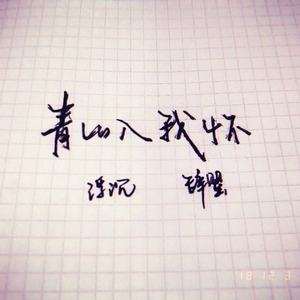 青山入我怀
浮沉 辞蟹
18 12 3